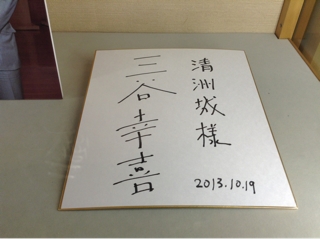 清洲城様
三谷幸喜
2013.10.19